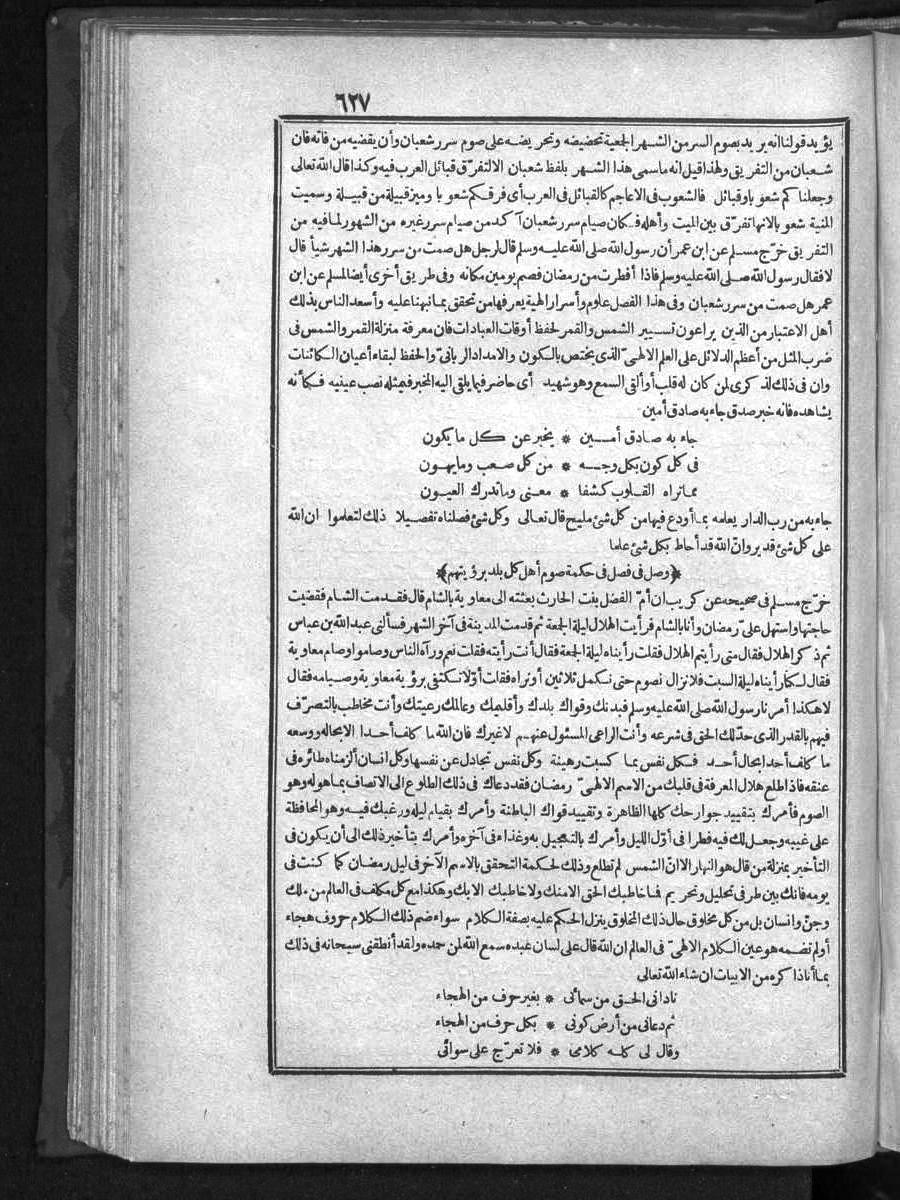 ٦٢٧
يؤيد قولنا انه يريد بصوم السرر من الشهر الجمعية تحضيضه وتحريضه على صوم سرر شعبان وأن يقضيه من فاته فان
شعبان من التفريق ولهذا قيل انه ما سمى هذا الشهر بلفظ شعبان الا لتفرّق قبائل العرب فيه وكذا قال الله تعالى
وجعلناكم شعوبا وقبائل فالشعوب فى الاعاجم كالقبائل فى العرب أى فرقكم شعوبا وميز قبيلة من قبيلة وسميت
المنية شعوبا لانها تفرّق بين الميت وأهله فكان صيام سرر شعبان آكد من صيام سرر غيره من الشهور لما فيه من
التفريق خرّج مسلم عن ابن عمر أن رسول الله صلى الله عليه وسلم قال لرجل هل صمت من سرر هذا الشهر شيأ قال
لا فقال رسول الله صلى الله عليه وسلم فاذا أفطرت من رمضان فصم يومين مكانه وفى طريق أخرى أيضا لمسلم عن ابن
عمر هل صمت من سرر شعبان وفى هذا الفصل علوم وأسرار الهية يعرفها من تحقق بما نبهنا عليه وأسعد الناس بذلك
أهل الاعتبار من الذين يراعون تسيير الشمس والقمر لحفظ أوقات العبادات فان معرفة منزلة القمر والشمس فى
ضرب المثل من أعظم الدلائل على العلم الالهىّ الذى يختص بالكون والامداد الربانىّ والحفظ لبقاء أعيان الكائنات
وان فى ذلك لذكرى لمن كان له قلب أو ألقى السمع وهو شهيد أى حاضر فيما يلقى اليه المخبر فيمثله نصب عينيه فكأنه
يشاهده فانه خبر صدق جاء به صادق أمين
جاء به صادق أمين * يخبر عن كل ما يكون
فى كل كون بكل وجه * من كل صعب وما يهون
مما تراه القلوب كشفا * معنى وما تدرك العيون
جاء به من رب الدار يعلمه بما أودع فيها من كل شئ مليح قال تعالى وكل شئ فصلناه تفصيلا ذلك لتعلموا ان الله
على كل شئ قدير وانّ الله قد أحاط بكل شئ علما
﴿وصل فى فصل فى حكمة صوم أهل كل بلد برؤيتهم﴾
خرّج مسلم فى صحيحه عن كريب ان أمّ الفضل بنت الحارث بعثته الى معاوية بالشام قال فقدمت الشام فقضيت
حاجتها واستهل علىّ رمضان وأنا بالشام فرأيت الهلال ليلة الجمعة ثم قدمت المدينة فى آخر الشهر فسألنى عبد الله بن عباس
ثم ذكر الهلال فقال متى رأيتم الهلال فقلت رأيناه ليلة الجمعة فقال أنت رأيته فقلت نعم ورآه الناس وصاموا وصام معاوية
فقال لكنا رأيناه ليلة السبت فلا نزال نصوم حتى نكمل ثلاثين أو نراه فقلت أوّلا نكتفى برؤية معاوية وصيامه فقال
لا هكذا أمرنا رسول الله صلى الله عليه وسلم فبدنك وقواك بلدك وأقليمك وعالمك رعيتك وأنت مخاطب بالتصرّف
فيهم بالقدر الذى حدّ لك الحق فى شرعه وأنت الراعى المسئول عنهم لا غيرك فان الله ما كلف أحدا الا بحاله ووسعه
ما كلف أحدا بحال أحد فكل نفس بما كسبت رهينة وكل نفس تجادل عن نفسها وكل انسان ألزمناه طائره فى
عنقه فاذا طلع هلال المعرفة فى قلبك من الاسم الالهىّ رمضان فقد دعاك فى ذلك الطلوع الى الاتصاف بما هو له وهو
الصوم فأمرك بتقييد جوارحك كلها الظاهرة وتقييد قواك الباطنة وأمرك بقيام ليله ورغبك فيه وهو المحافظة
على غيبه وجعل لك فيه فطرا فى أوّل الليل وأمرك بالتعجيل به وغذاء فى آخره وأمرك بتأخير ذلك الى أن يكون فى
التأخير بمنزلة من قال هو النهار الا انّ الشمس لم تطلع وذلك لحكمة التحقق بالاسم الآخر فى ليل رمضان كما كنت فى
يومه فانك بين طرفى تحليل وتحريم فما خاطبك الحق الا منك ولا خاطبك الا بك وهكذا مع كل مكلف فى العالم من ملك
وجنّ وانسان بل من كل مخلوق حال ذلك المخلوق ينزل الحكم عليه بصفة الكلام سواء ضم ذلك الكلام حروف هجاء
أو لم تضمه هو عين الكلام الالهىّ فى العالم ان الله قال على لسان عبده سمع الله لمن حمده ولقد أنطقنى سبحانه فى ذلك
بما أنا ذاكره من الابيات ان شاء الله تعالى
نادانى الحق من سمائى * بغير حرف من الهجاء
ثم دعانى من أرض كونى * بكل حرف من الهجاء
وقال لى كله كلامى * فلا تعرّج على سوائى